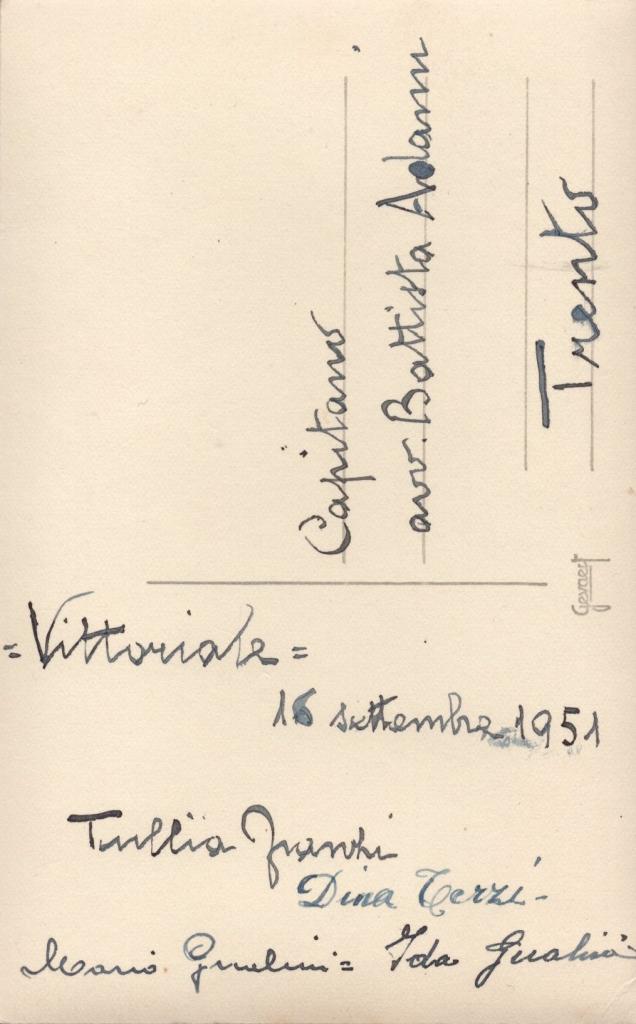 Capitano
avv. Battista Adami
Trento
Gevaert
= Vittoriale =
16 settembre 1951
Tullia Franchi
Dina Terzi -
Mario Gualini = Ida Gualini